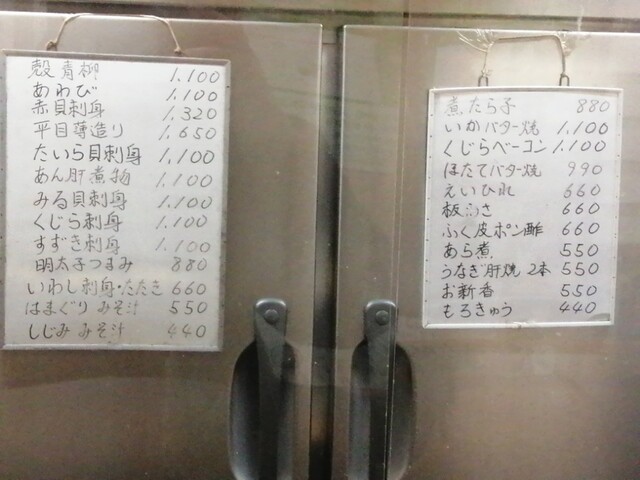 殻青柳 1,100
あわび 1,100
赤貝刺身 1,320
平目薄造り 1,650
たいら貝刺身 1,100
あん肝煮物 1,100
みる貝刺身 1,100
くじら刺身 1,100
すずき刺身 1,100
明太子つまみ 880
いわし刺身・たたき 660
はまぐり みそ汁 550
しじみ みそ汁 440
煮たら子 880
いかバター焼 1,100
くじらベーコン 1,100
ほたてバター焼 990
えいひれ 660
板わさ 660
ふぐ皮ポン酢 660
あら煮 550
うなぎ肝焼 2本 550
お新香 550
もろきゅう 440